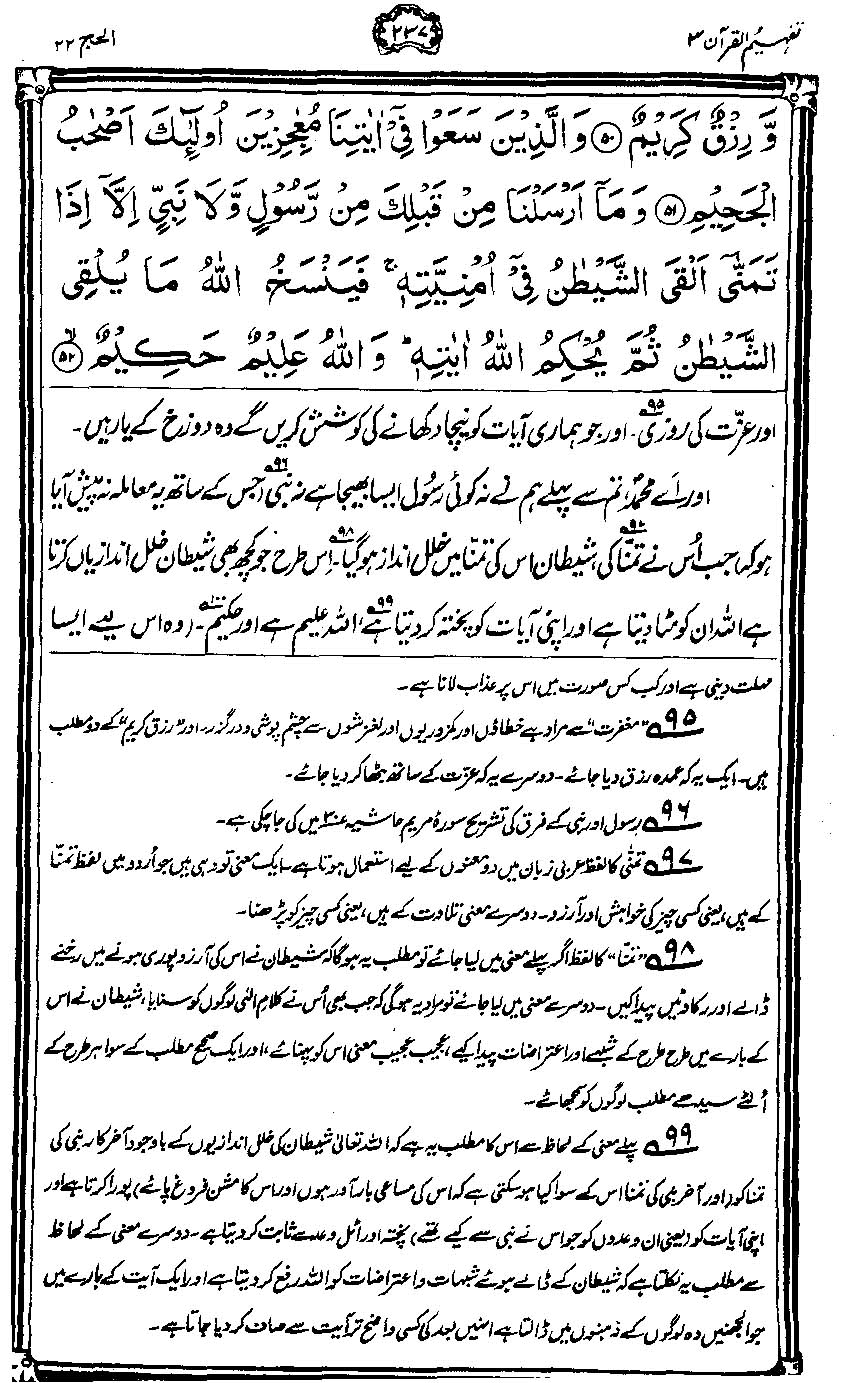 تفہیم القرآن ۳
۲۳۷
الحج ۲۲
وَّ رِزْقٌ كَرِيْمٌ ۝۵۰ وَالَّذِيْنَ سَعَوْا فِيْٓ اٰيٰتِنَا مُعٰجِزِيْنَ اُولٰٓئِكَ اَصْحٰبُ
الْجَحِيْمِ ۝۵۱ وَمَآ اَرْسَلْنَا مِنْ قَبْلِكَ مِنْ رَّسُوْلٍ وَّلَا نَبِيٍّ اِلَّآ اِذَا
تَمَنّٰٓى اَلْقَى الشَّيْطٰنُ فِيْٓ اُمْنِيَّتِهٖ ۚ فَيَنْسَخُ اللّٰهُ مَا يُلْقِى
الشَّيْطٰنُ ثُمَّ يُحْكِمُ اللّٰهُ اٰيٰتِهٖ ؕ وَاللّٰهُ عَلِيْمٌ حَكِيْمٌ ۝۵۲
اور عزّت کی روزی۹۵۔ اور جو ہماری آیات کو نیچا دکھانے کی کوشش کریں گے وہ دوزخ کے یار ہیں۔
اور اَے محمدؐ، تم سے پہلے ہم نے نہ کوئی رسُول ایسا بھیجا ہے نہ نبی۹۶ (جس کے ساتھ یہ معاملہ نہ پیش آیا
ہو کہ) جب اُس نے تمنّا۹۷ کی، شیطان اس کی تمنّا میں خلل انداز ہو گیا۹۸۔ اِس طرح جو کچھ بھی شیطان خلل اندازیاں کرتا
ہے اللہ ان کو مٹا دیتا ہے اور اپنی آیات کو پختہ کر دیتا ہے۹۹، اللہ علیم ہے اور حکیم۱۰۰۔ (وہ اس لیے ایسا
مہلت دینی ہے اور کب کس صورت میں اس پر عذاب لانا ہے۔
۹۵ ”مغفرت“ سے مراد ہے خطاؤں اور کمزوریوں اور لغزشوں سے چشم پوشی و درگزر۔ اور ”رزق کریم“ کے دو مطلب
ہیں۔ ایک یہ کہ عمدہ رزق دیا جائے۔ دوسرے یہ کہ عزّت کے ساتھ بٹھا کر دیا جائے۔
۹۶ رسول اور نبی کے فرق کی تشریح سورۂ مریم حاشیہ ع۳۰ میں کی جا چکی ہے۔
۹۷ تمنّٰی کا لفظ عربی زبان میں دو معنوں کے لیے استعمال ہوتا ہے۔ ایک معنی تو وہی ہیں جو اُردو میں لفظ تمنّا
کے ہیں، یعنی کسی چیز کی خواہش اور آرزو۔ دوسرے معنی تلاوت کے ہیں، یعنی کسی چیز کو پڑھنا۔
۹۸ ”تمنّا“ کا لفظ اگر پہلے معنی میں لیا جائے تو مطلب یہ ہوگا کہ شیطان نے اس کی آرزو پوری ہونے میں رخنے
ڈالے اور رکاوٹیں پیدا کیں۔ دوسرے معنی میں لیا جائے تو مراد یہ ہوگی کہ جب بھی اُس نے کلامِ الٰہی لوگوں کو سنایا، شیطان نے اس
کے بارے میں طرح طرح کے شبہے اور اعتراضات پیدا کیے، عجیب عجیب معنی اس کو پہنائے، اور ایک صحیح مطلب کے سوا ہر طرح کے
اُلٹے سیدھے مطلب لوگوں کو سمجھائے۔
۹۹ پہلے معنی کے لحاظ سے اس کا مطلب یہ ہے کہ اللہ تعالیٰ شیطان کی خلل اندازیوں کے باوجود آخر کار نبی کی
تمنا کو (اور آخر نبی کی تمنا اس کے سوا کیا ہو سکتی ہے کہ اس کی مساعی بار آور ہوں اور اس کا مشن فروغ پائے) پورا کرتا ہے اور
اپنی آیات کو (یعنی ان وعدوں کو جو اس نے نبی سے کیے تھے) پختہ اور اٹل وعدے ثابت کر دیتا ہے۔ دوسرے معنی کے لحاظ
سے مطلب یہ نکلتا ہے کہ شیطان کے ڈالے ہوئے شبہات و اعتراضات کو اللہ رفع کر دیتا ہے اور ایک آیت کے بارے میں
جو الجھنیں وہ لوگوں کے ذہنوں میں ڈالتا ہے انہیں بعد کی کسی واضح تر آیت سے صاف کر دیا جاتا ہے۔